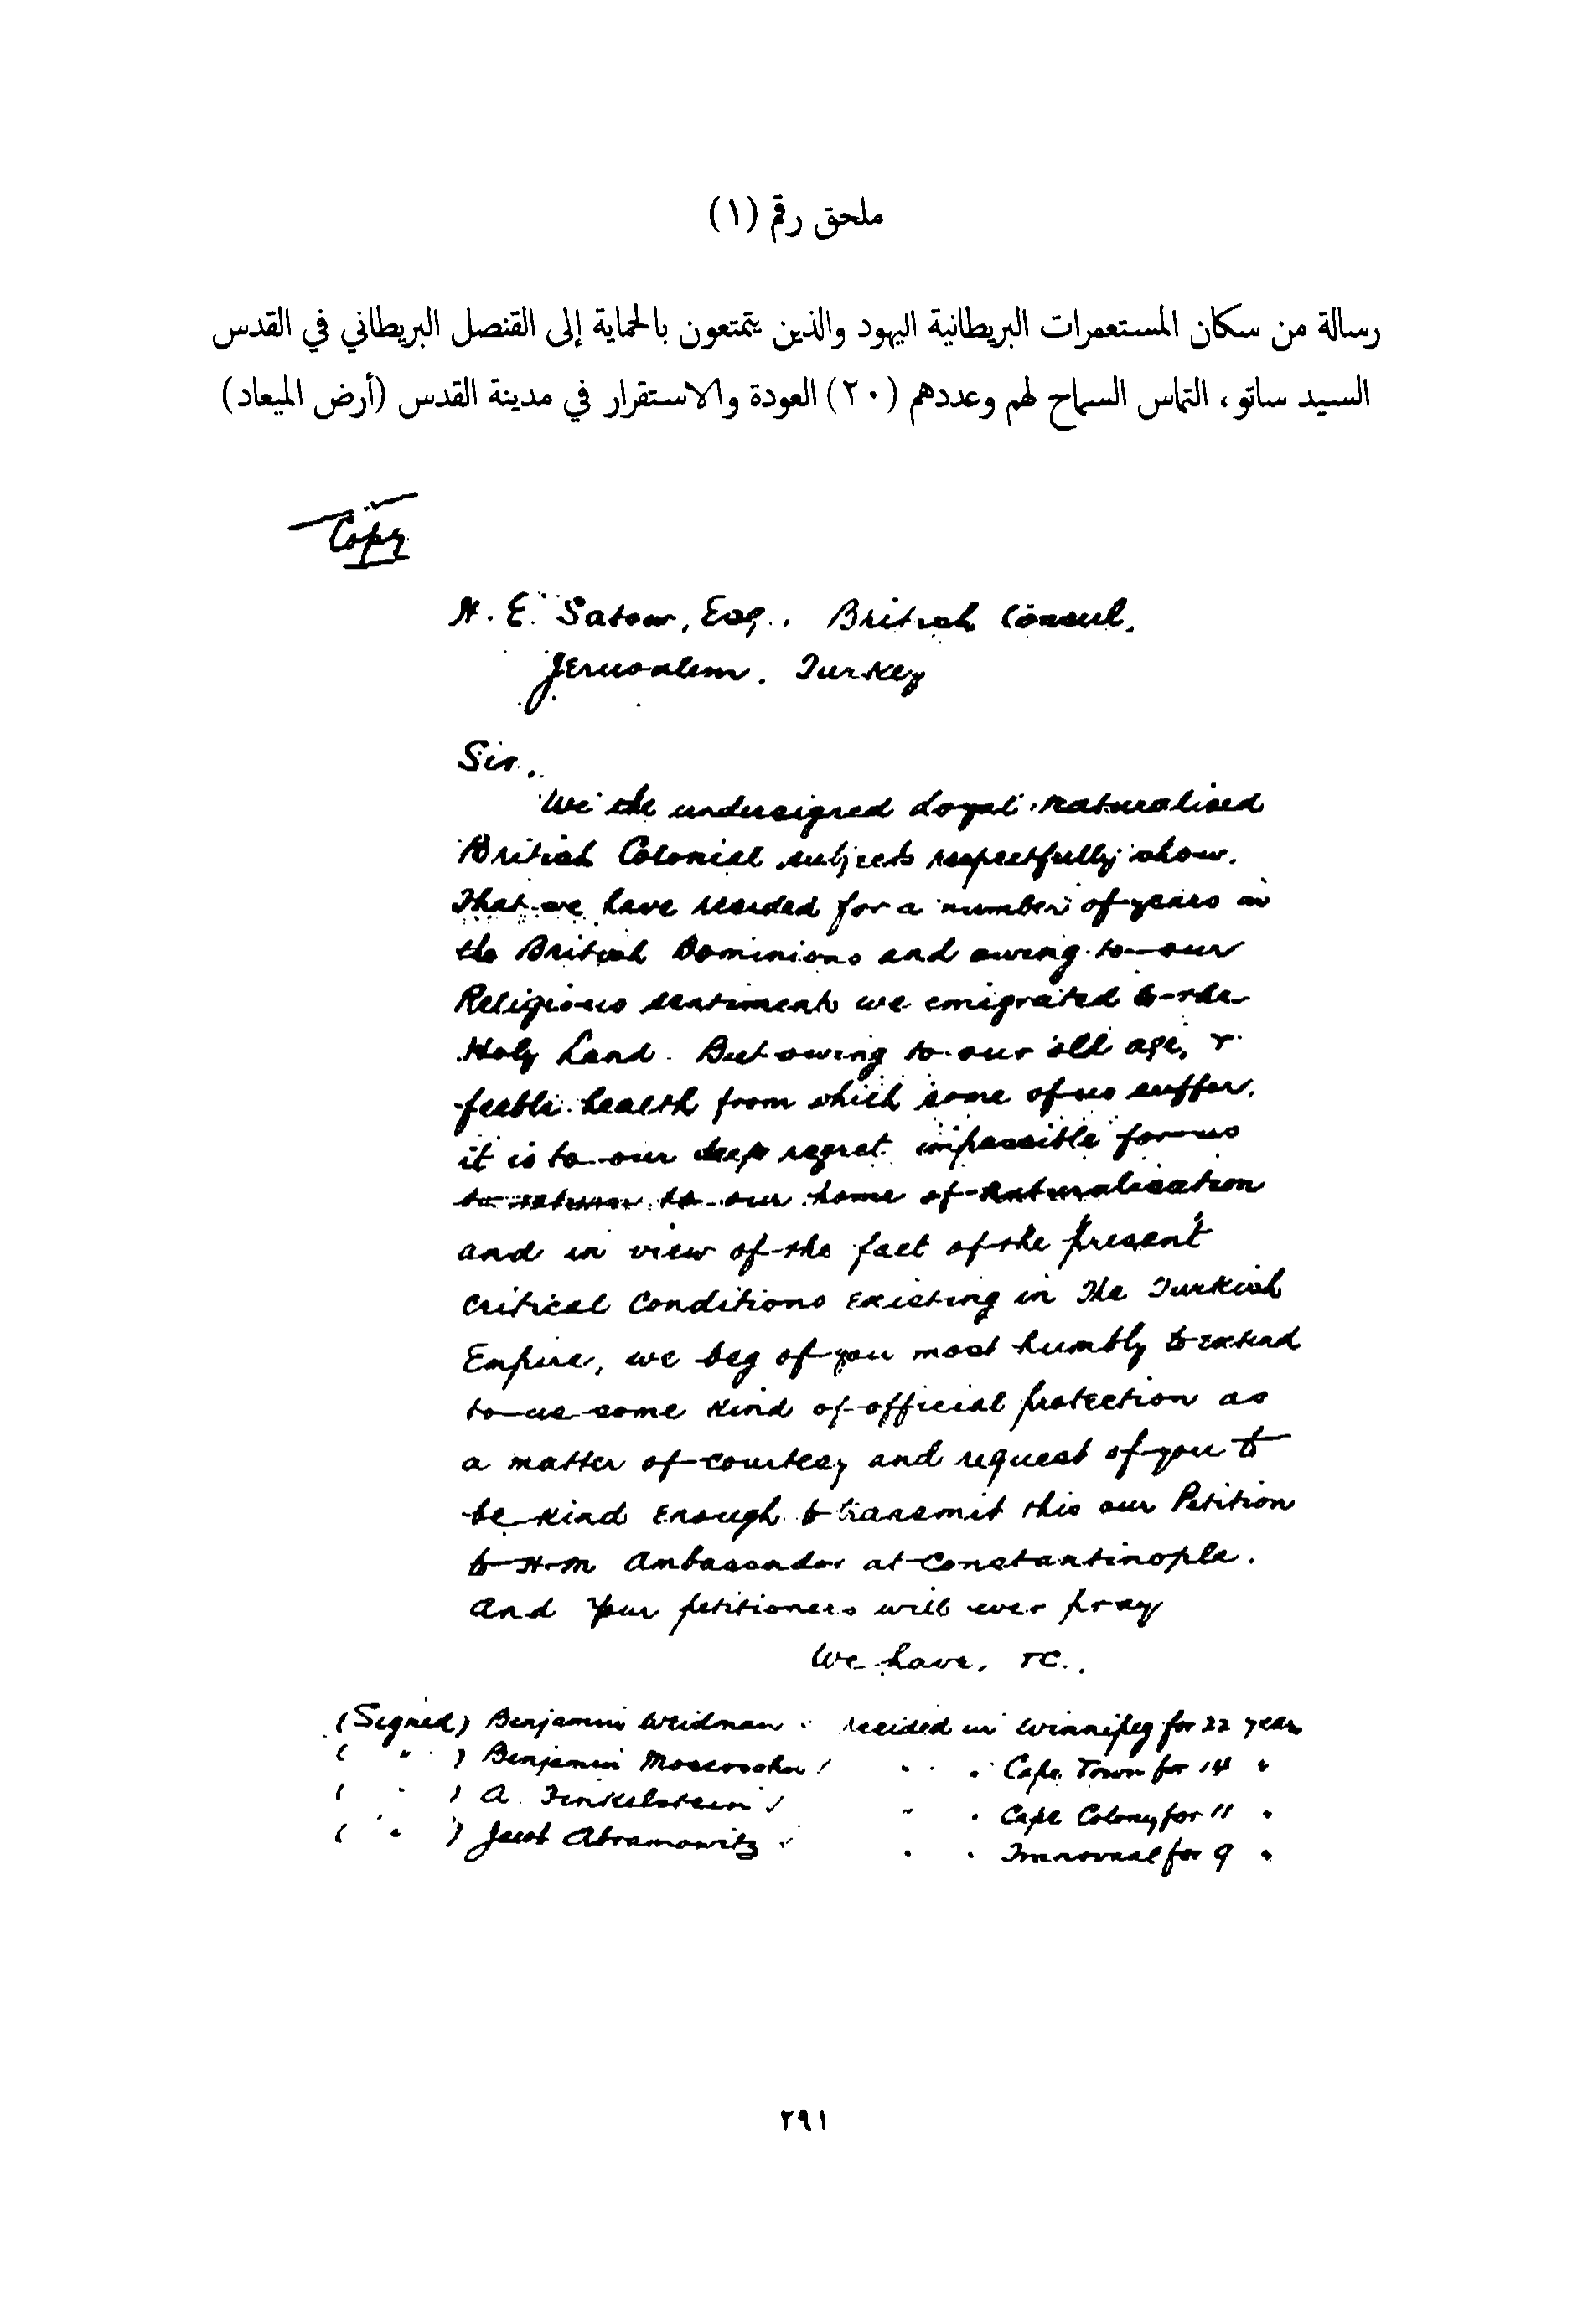 ملحق رقم (١)
رسالة من سكان المستعمرات البريطانية اليهود والذين يتمتعون بالحماية إلى القنصل البريطاني في القدس
السيد ساتو، التماس السماح لهم وعددهم (٢٠) العودة والاستقرار في مدينة القدس (أرض الميعاد)
Copy
H. E. Satow, Esq., British Consul,
Jerusalem, Turkey
Sir,
We the undersigned Loyal naturalised
British Colonial subjects respectfully show.
That we have resided for a number of years in
the British Dominions and owing to our
Religious sentiments we emigrated to the
Holy Land. But owing to our old age, &
feeble health from which some of us suffer,
it is to our deep regret impossible for us
to return to our home of naturalisation
and in view of the fact of the present
Critical Conditions Existing in The Turkish
Empire, we beg of you most humbly to extend
to us some kind of official protection as
a matter of courtesy and request of you to
be kind Enough to transmit this our Petition
to H.M Ambassador at Constantinople.
And Your petitioners will ever pray
We have, &c.,
(Signed) Benjamin Weidman resided in Winnipeg for 22 years
( " ) Benjamin " " Cape Town for 14 "
( " ) A. Finkelstein " " Cape Colony for 11 "
( " ) Jacob Abramowitz " " Transvaal for 9 "
٢٩١